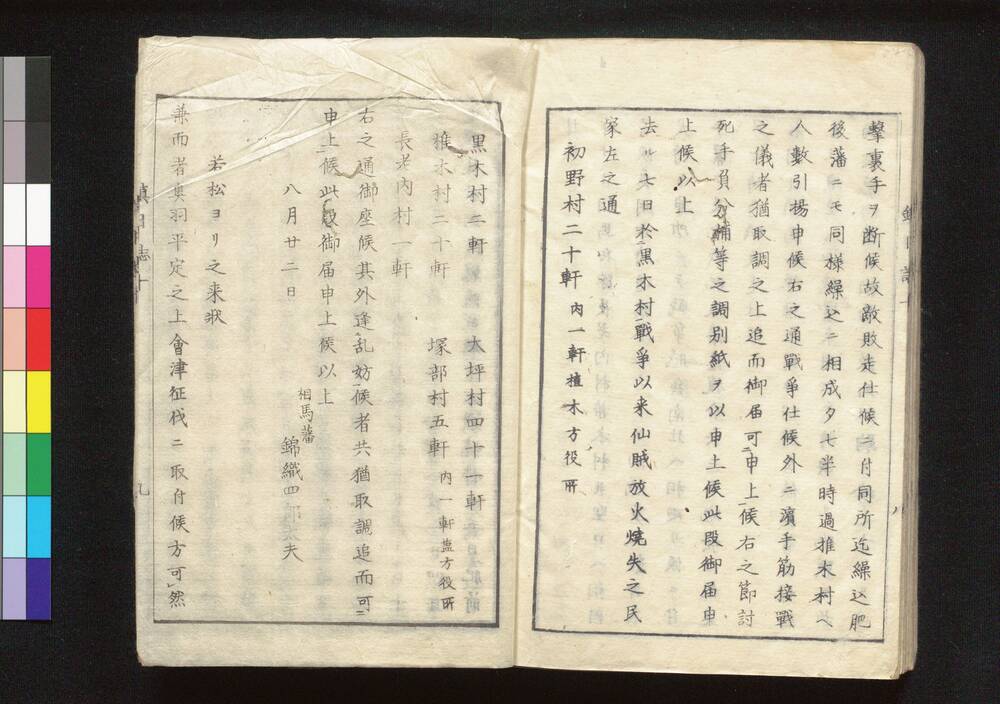 撃裏手ヲ断候故敵敗走仕候ニ付同所迄繰込肥
後藩ニモ同様繰込ニ相成夕七半時過椎木村ヘ
人數引揚申候右之通戰爭仕候外ニ濱手筋接戰
之儀者猶取調之上追而御届可申上候右之節討
死手負分捕等之調別紙ヲ以申上候此段御届申
上候以上
去ル七日於黒木村戰爭以来仙賊放火燒失之民
家左之通
初野村二十軒 内一軒植木方役所
黒木村二軒 大坪村四十一軒
椎木村二十軒 塚部村五軒 内一軒塩方役所
長老内村一軒
右之通御座候其外逢乱妨候者共猶取調追而可
申上候此段御届申上候以上
八月廿二日
相馬藩 錦織四郎太夫
若松ヨリ之来状
兼而者奥羽平定之上會津征伐ニ取付候方可然
鎮日誌十 九